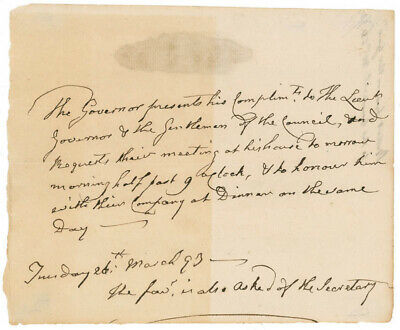 The Governor presents his Complimts. to the Lieut.
Governor & the Gentlemen of the Council, and
requests their meeting at his house to morrow
morning half past 9 oClock, & to honour him
with their Company at Dinner on the same
Day —
Tuesday 26th. March 93 —
The favr. is also asked of the Secretary